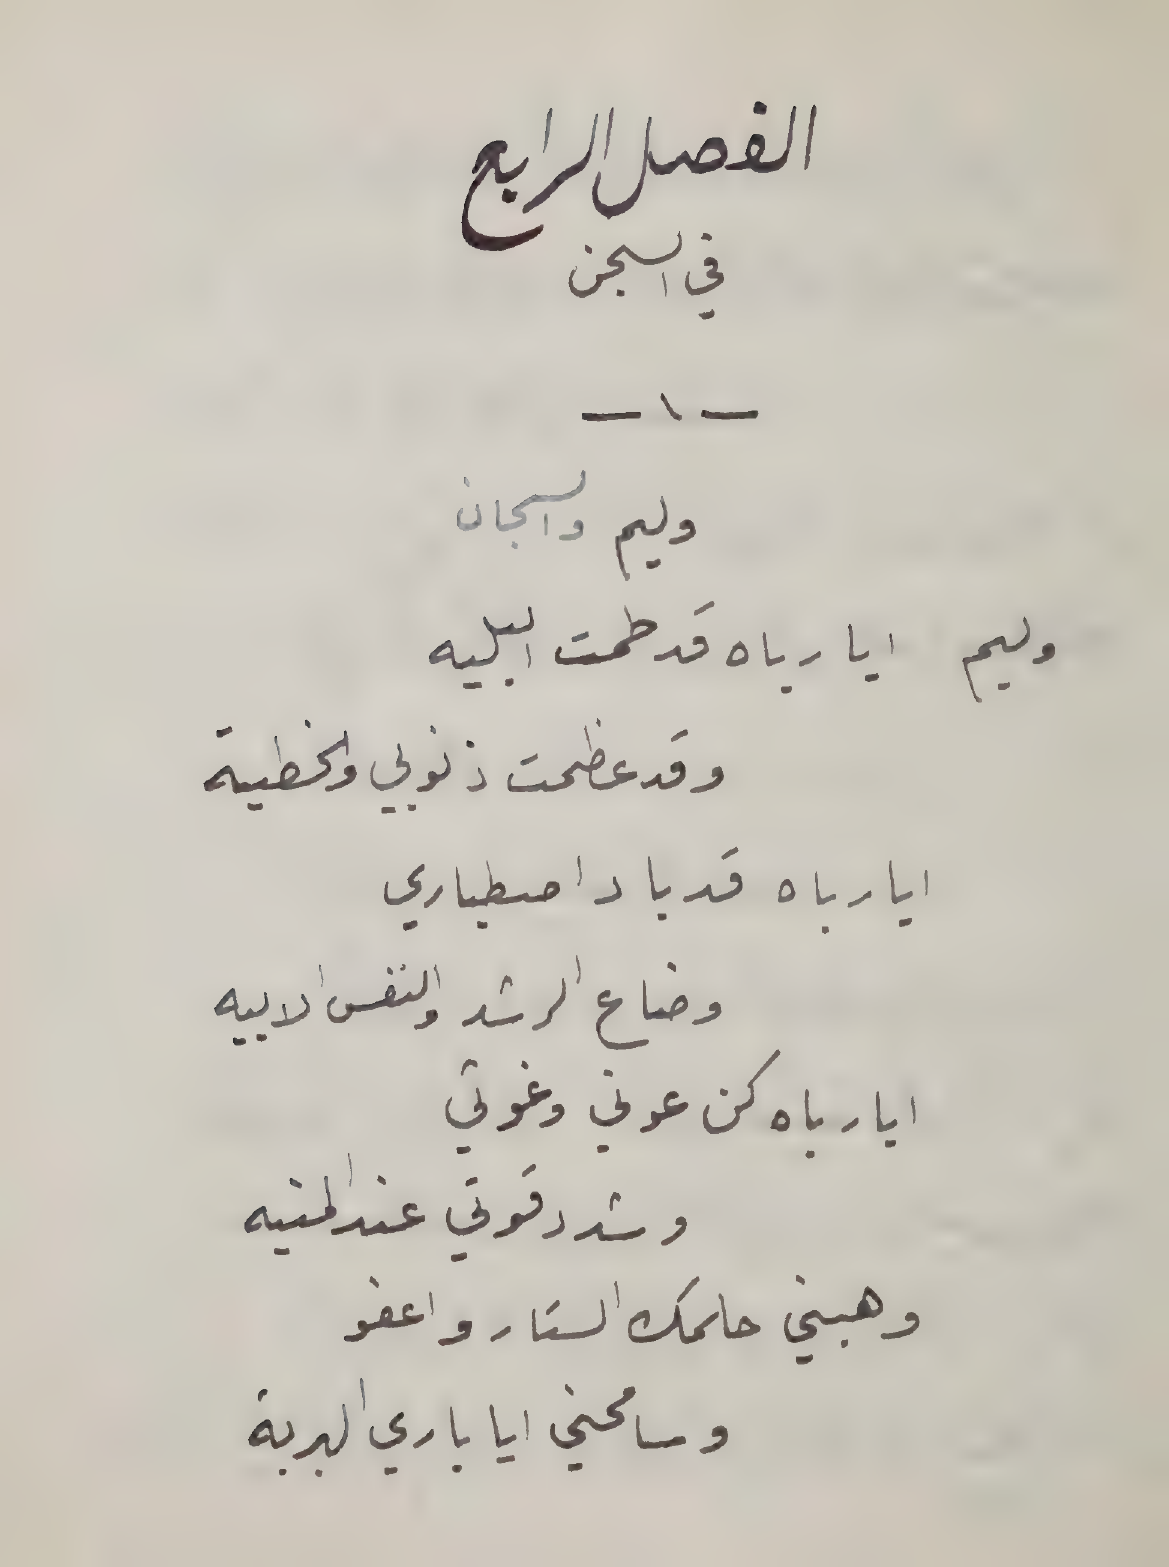 الفصل الرابع
في السجن
— ١ —
وليم والسجان
وليم ايا رباه قد طمت البليه
وقد عظمت ذنوبي والخطية
ايا رباه قد باد اصطباري
وضاع الرشد والنفس الابيه
ايا رباه كن عوني وغوثي
وشدد قوتي عند المنيه
وهبني حلمك الستار واعفو
وسامحني ايا باري البرية